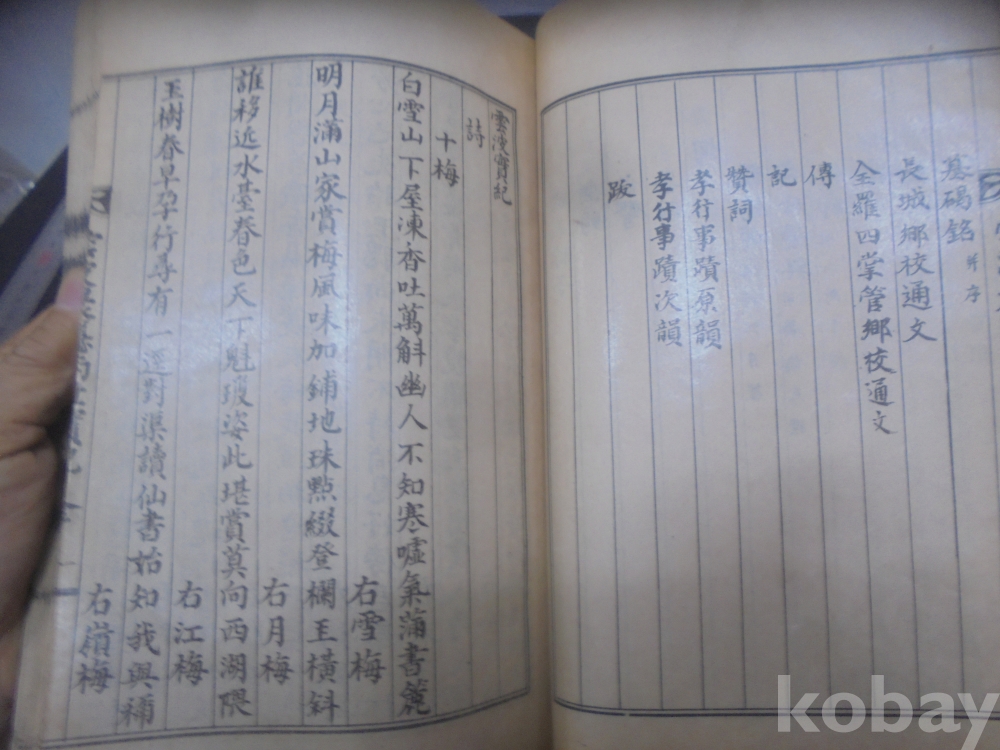 墓碣銘 并序
長城鄉校通文
全羅四掌管鄉校通文
傳
記
贊詞
孝行事蹟原韻
孝行事蹟次韻
跋
詩
十梅
白雪山下屋凍香吐萬斛幽人不知寒噓氣滿書簏
右雪梅
明月滿山家賞梅風味加鋪地珠點綴登欄玉橫斜
右月梅
誰移近水臺春色天下魁瓊姿此堪賞莫向西湖隈
右江梅
玉樹春早孕行尋有一逕對渠讀仙書始知我與稱
右嶺梅
kobay